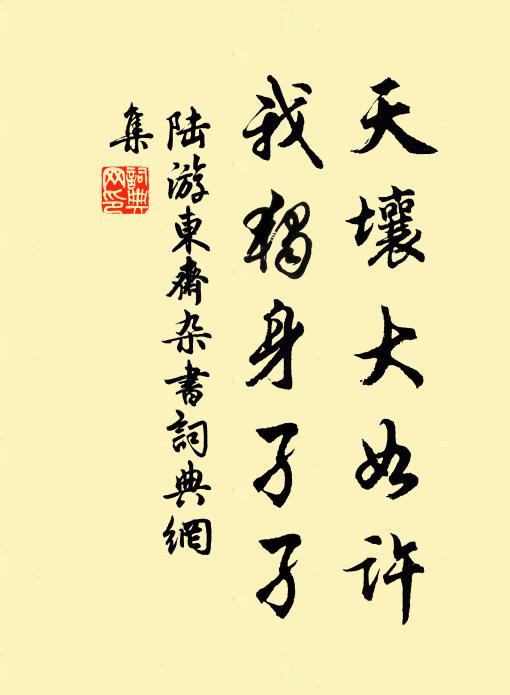 天壤大如许
我獨身孑孑
陆游東齋杂書詞典網
集
詞典
网印